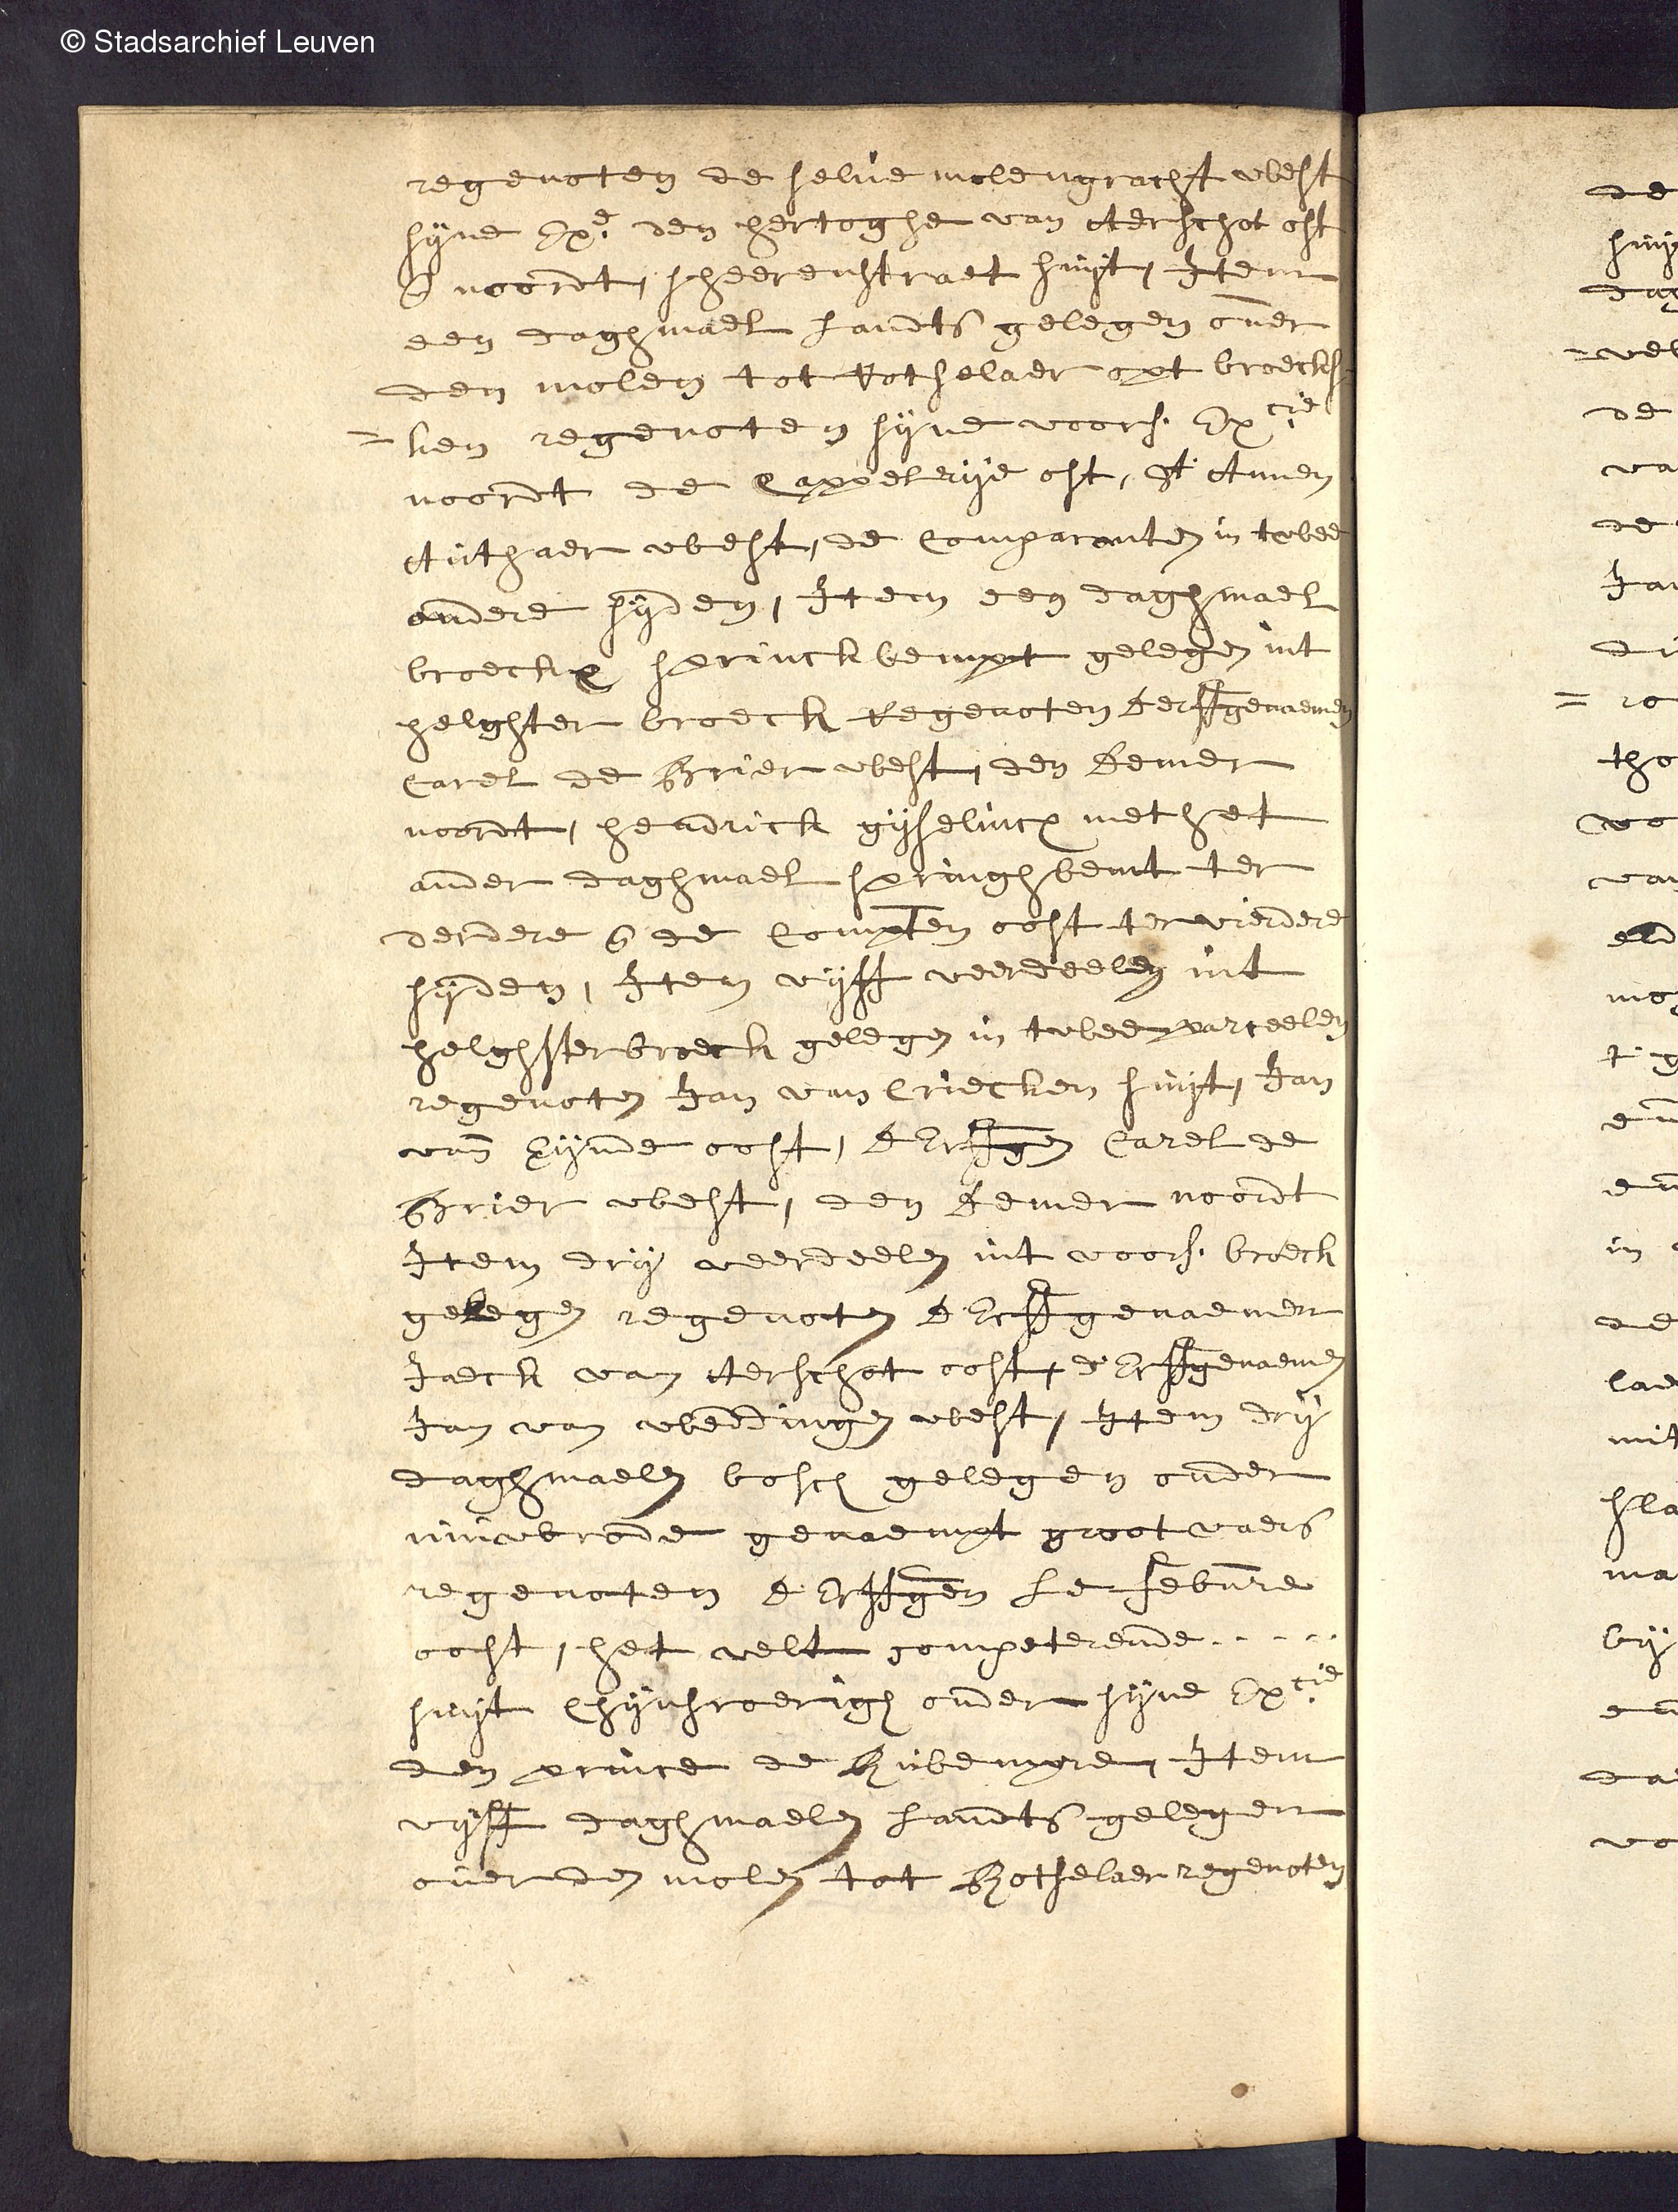 © Stadsarchief Leuven
regenoten de selve molengracht west
syne Exe. den hertoghe van Aerschot ost
en noordt, sheerenstraet suyt, Item
een daghmael landts gelegen over
den molen tot Rotselaer opt broecks=
=ken regenoten syne voors. Excie.
noordt de Cappelrye ost, St. Annen
Authaer west, de Comparanten in twee
andere syden, Item een daghmael
broeckx sprinckbempt gelegen int
helghter broeck Regenoten derffgenaemen
Carel de Brier west, den demer
noordt, hendrick gyselincx met het
ander daghmael springhbemt ter
derdere en de Compten oost ter vierdere
syden, Item vyff veerdeelen int
helghsterbroeck gelegen in twee parceelen
regenoten Jan van Criecken suyt, Jan
van Eynde oost, dErffgen Carel de
Brier west, den demer noordt
Item dry veerdeelen int voors. broeck
gelegen regenoten dErffgenaemen
Jaeck van Aerschot oost, d'Erffgenaemen
Jan van weddingen west, Item dry
daghmaelen bosch gelegen onder
nieuwrode genaempt groot vaers
regenoten dErffgen Le febure
oost, het velt competerende - - - -
suyt Chynsroerigh onder syne Excie.
den prince de Rubempre, Item
vyff daghmaelen landts gelegen
over den molen tot Rotselaer regenoten